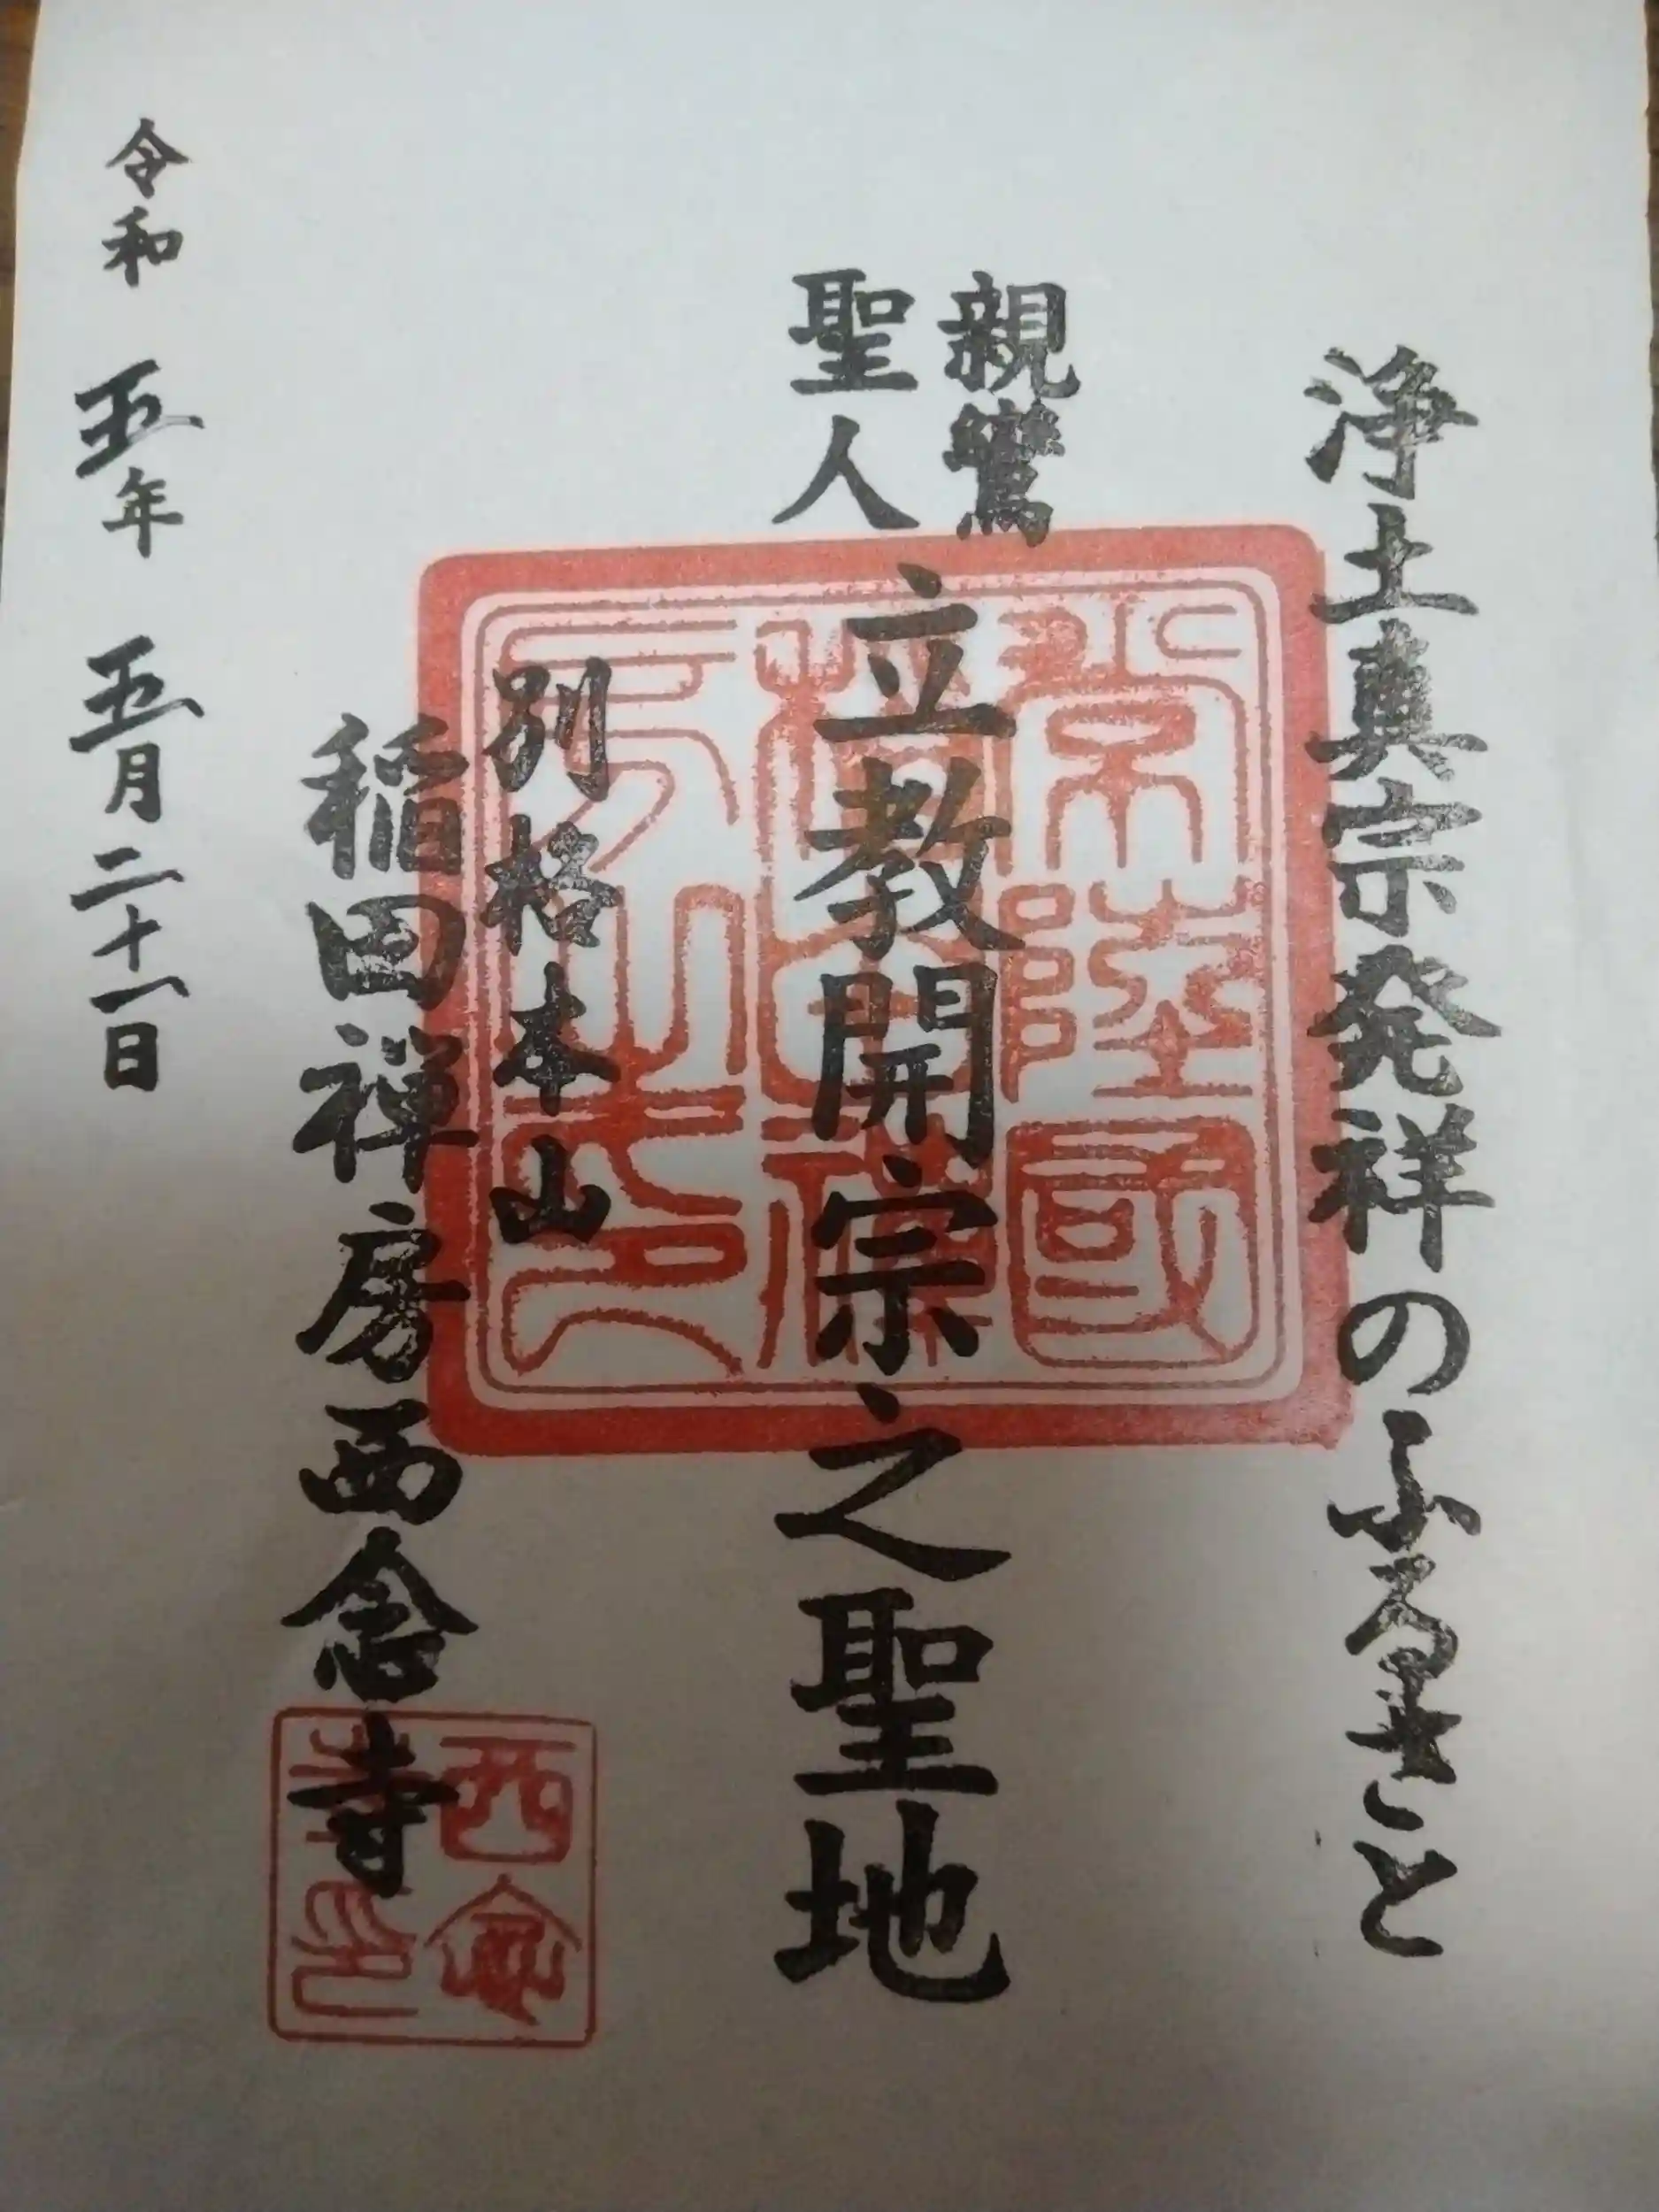 浄土真宗発祥のふるさと
親鸞
聖人
立教開宗之聖地
別格本山
稲田禅房西念寺
令和五年五月二十一日
西念
寺印